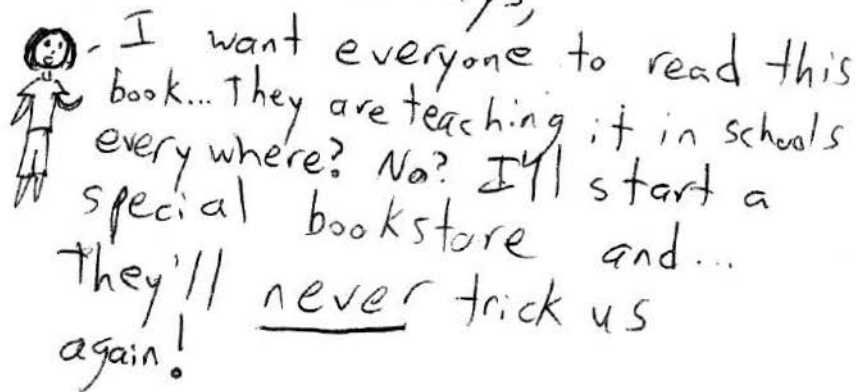 I want everyone to read this
book... They are teaching it in schools
everywhere? No? I'll start a
special bookstore and...
They'll never trick us
again!